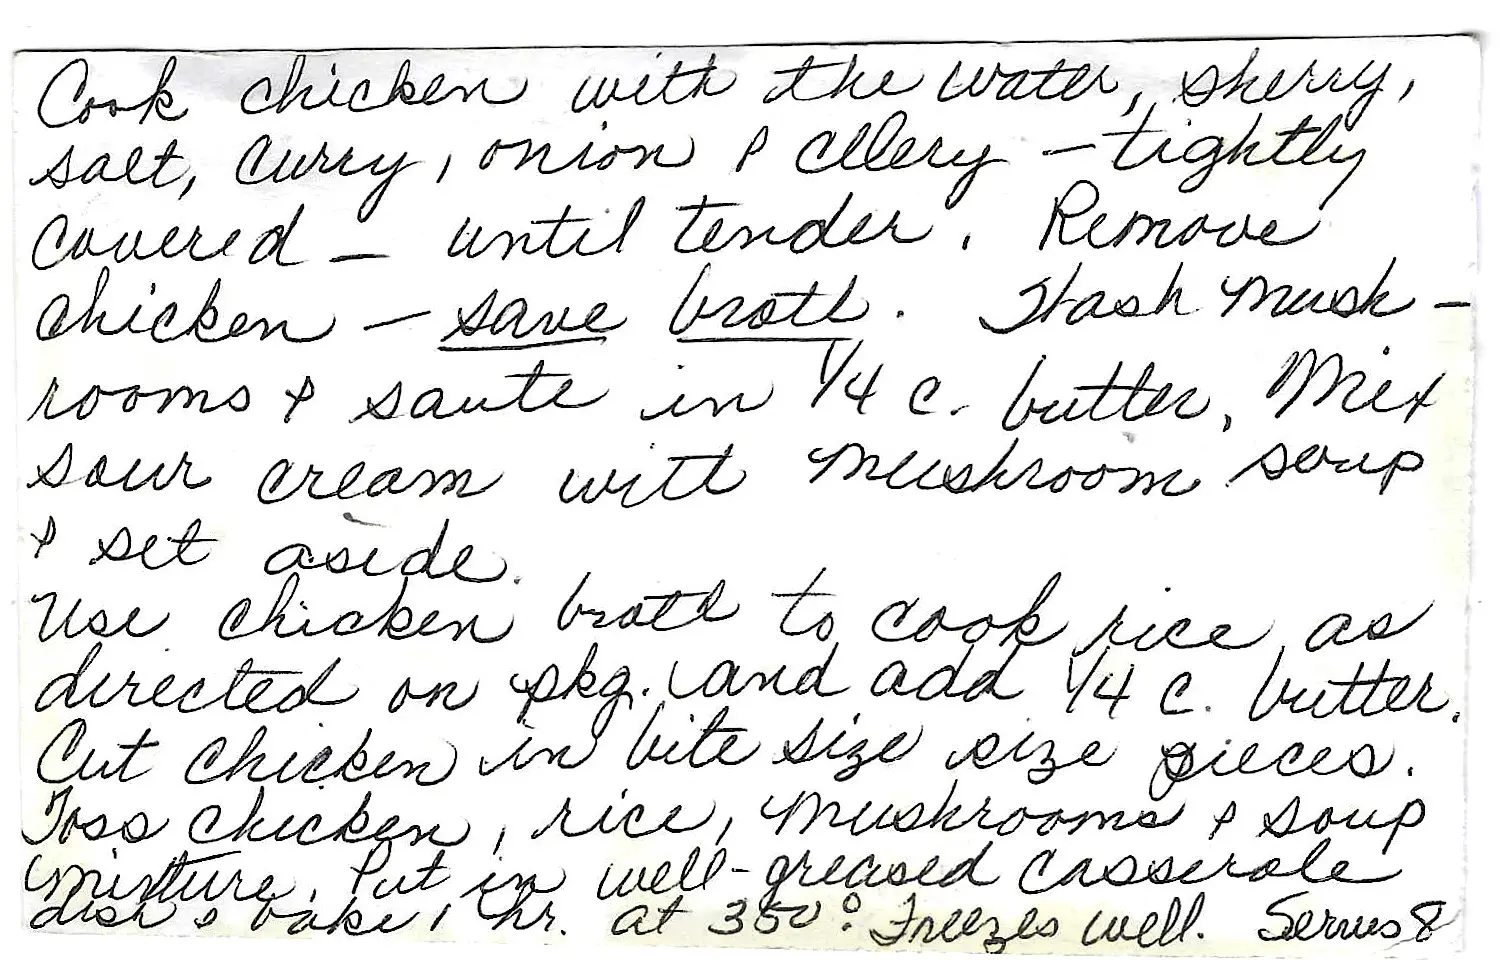 Cook chicken with the water, sherry,
salt, curry, onion & cellery – tightly
covered – until tender. Remove
chicken – save broth. Wash mush-
rooms & saute in 1/4 c. butter. Mix
sour cream with mushroom soup
& set aside.
Use chicken broth to cook rice as
directed on pkg. and add 1/4 c. butter.
Cut chicken in bite size size pieces.
Toss chicken, rice, mushrooms & soup
mixture. Put in well-greased casserole
dish & bake 1 hr. at 350°. Freezes well. Serves 8